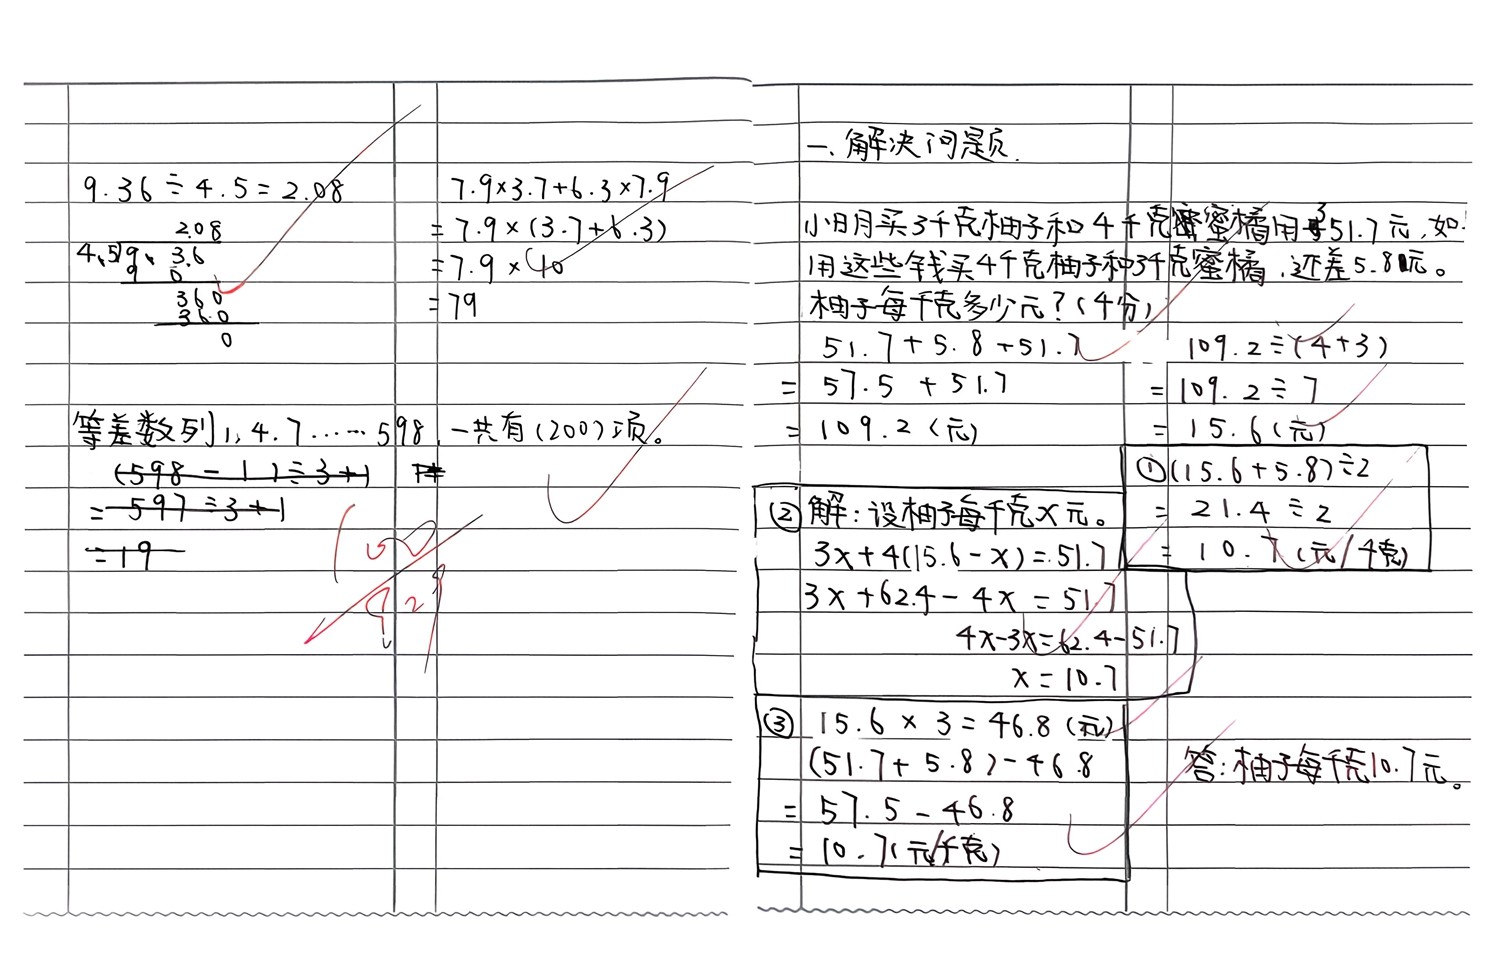 9.36÷4.5=2.08
2.08
4.5 9.3.6
9 0
360
360
0
7.9×3.7+6.3×7.9
=7.9×(3.7+6.3)
=7.9×10
=79
等差数列1,4.7……598,一共有(200)项。
(598-1)÷3+1
=597÷3+1
=19
一、解决问题.
小明买3千克柚子和4千克蜜蜜橘用51.7元,如
用这些钱买4千克柚子和3千克蜜橘,还差5.8元。
柚子每千克多少元?(4分)
51.7+5.8+51.7
=57.5+51.7
=109.2(元)
109.2÷(4+3)
=109.2÷7
=15.6(元)
①(15.6+5.8)÷2
=21.4÷2
=10.7(元/千克)
②解:设柚子每千克x元。
3x+4(15.6-x)=51.7
3x+62.4-4x=51.7
4x-3x=62.4-51.7
x=10.7
③15.6×3=46.8(元)
(51.7+5.8)-46.8
=57.5-46.8
=10.7(元/千克)
答:柚子每千克10.7元。